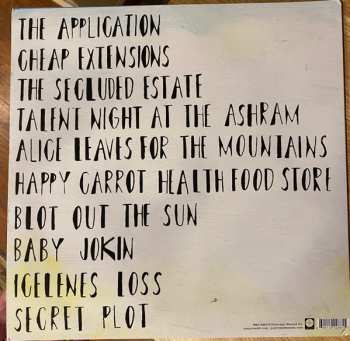 THE APPLICATION
CHEAP EXTENSIONS
THE SECLUDED ESTATE
TALENT NIGHT AT THE ASHRAM
ALICE LEAVES FOR THE MOUNTAINS
HAPPY CARROT HEALTH FOOD STORE
BLOT OUT THE SUN
BABY JOKIN
IGELENES LOSS
SECRET PLOT